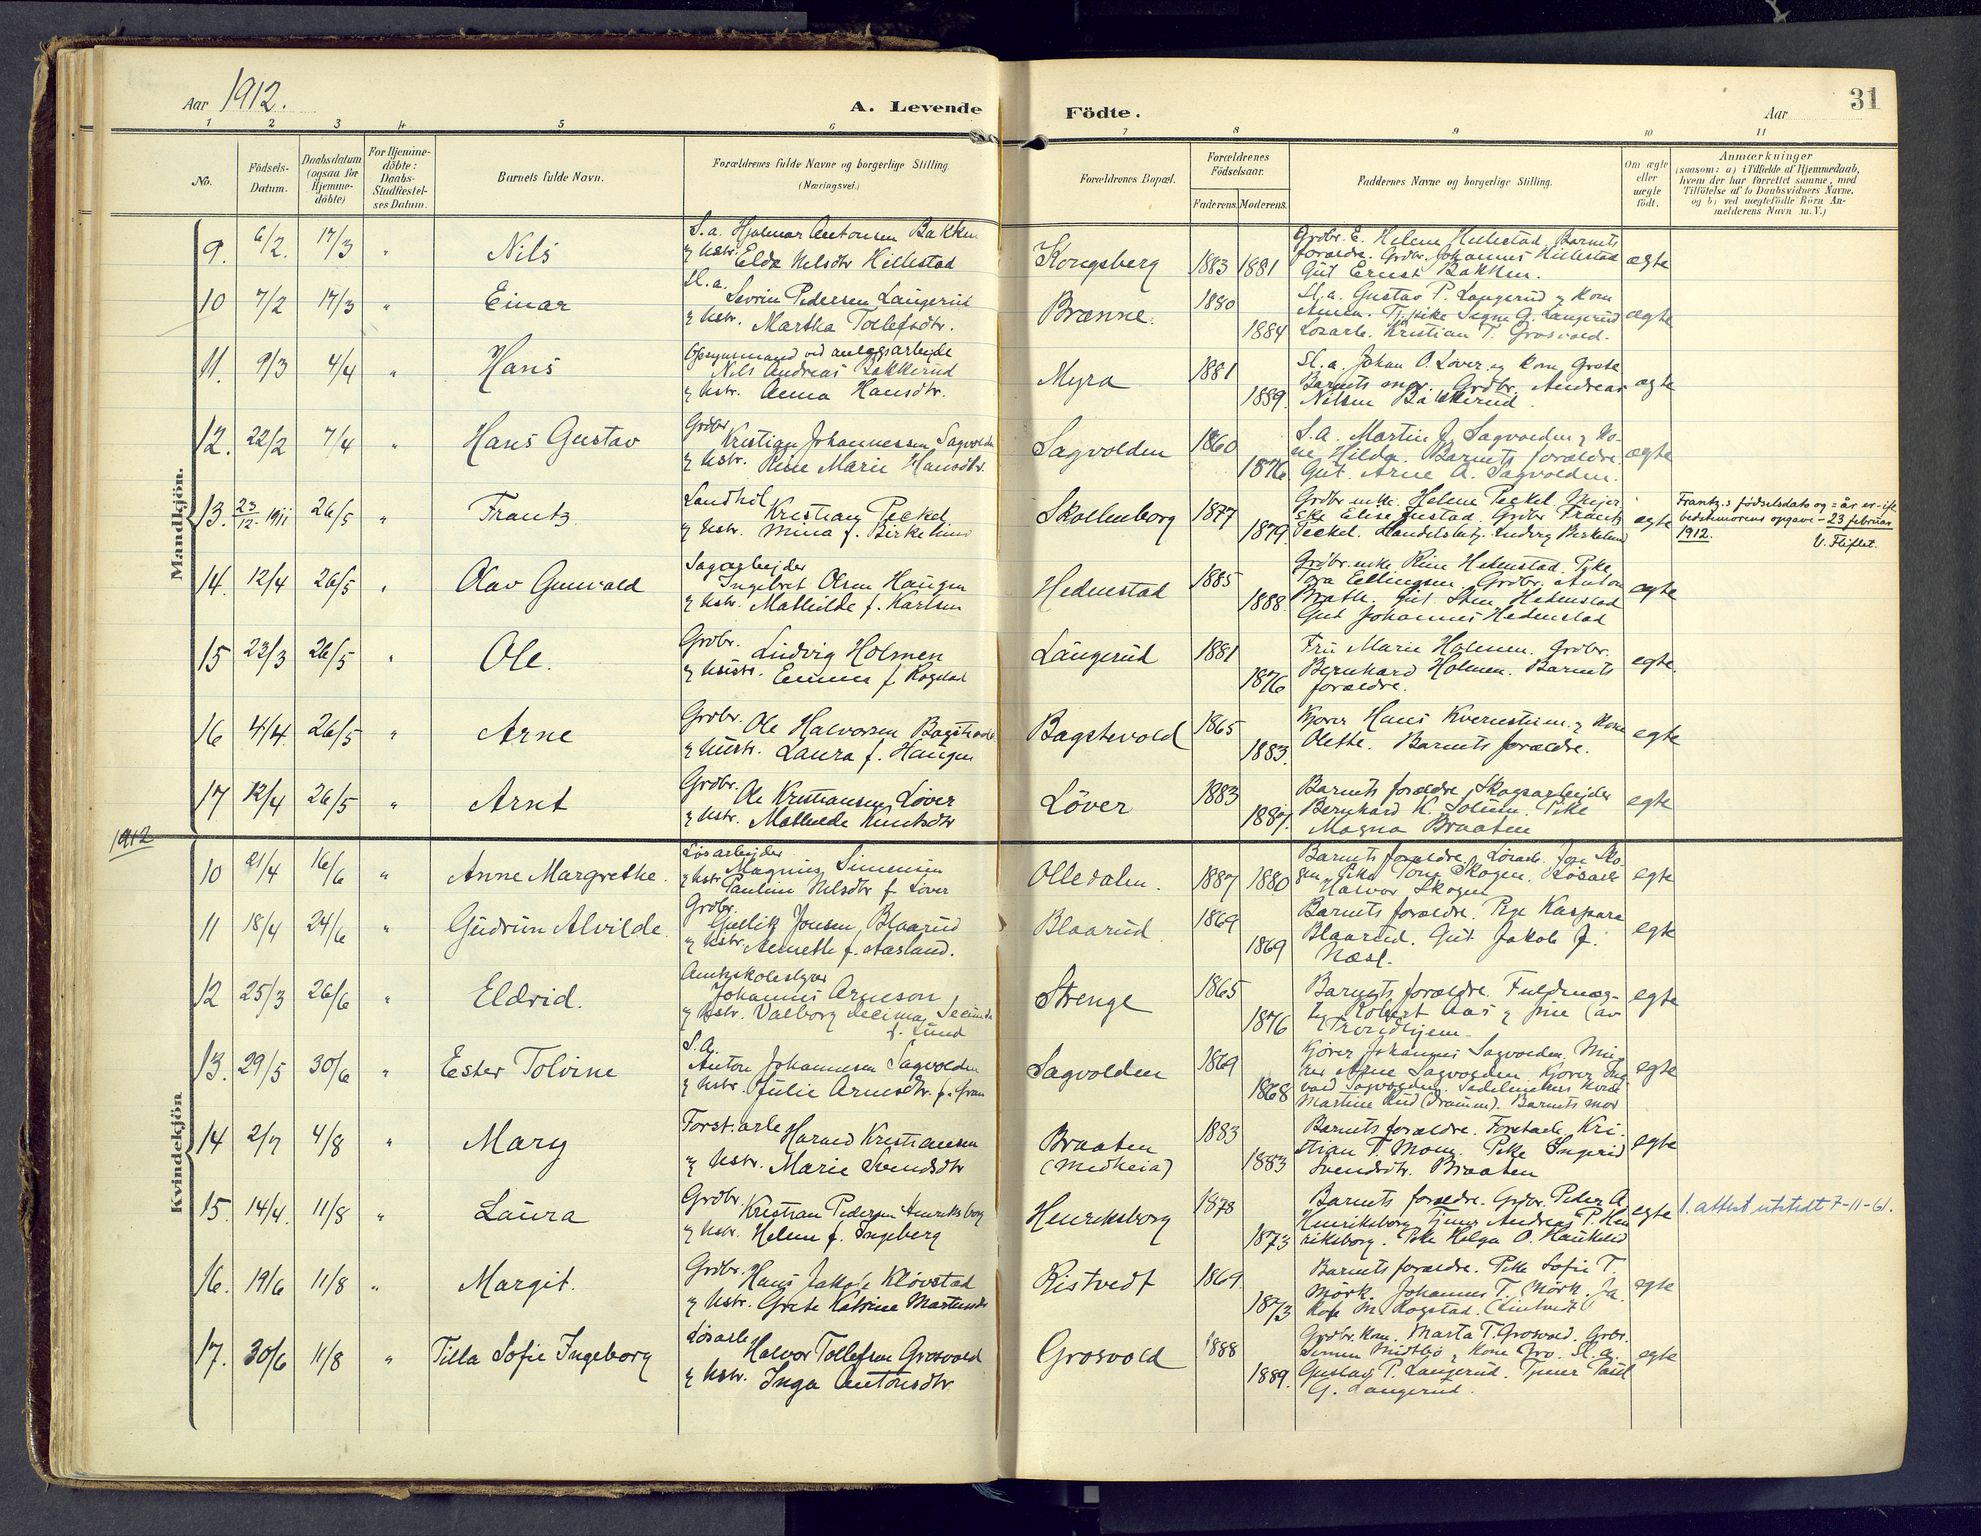 Aar 1912.
A. Levende
Födte.
Aar
31
1 2 3 4 5 6 7 8 9 10 11
No.
Födsels-
Datum.
Daabsdatum
(ogsaa for
Hjemme-
döbte)
For Hjemme-
döbte:
Daabs-
Stadfæstel-
ses Datum.
Barnets fulde Navn.
Forældrenes fulde Navne og borgerlige Stilling.
(Næringsvei.)
Forældrenes Bopæl.
Forældrenes
Födselsaar.
Faderens. Moderens.
Faddernes Navne og borgerlige Stilling.
Om ægte
eller
uægte
födt.
Anmærkninger
(saasom: a) i Tilfælde af Hjemmedaab,
hvem der har forrettet samme, med
Tilföielse af to Daabsvidners Navne,
og b) ved uægtefödte Börn An-
melderens Navn m. V.)
Mandkjön.
9. 6/2. 17/3 " Nils
S.a. Hjalmar Antonsen Bakken
og hstr. Elda Nilsdtr Hillestad
Kongsberg 1883 1881
Grdbr. E. Helene Hillestad. Barnets
forældre. Grdbr. Johannes Hillestad
Gut Ernst Bakken.
ægte
10 7/2 17/3 " Einar
Sl.a.
Sevrin Pedersen Langerud
og hstr. Martha Tollefsdtr.
Brænne. 1880
1884
Sl.a. Gustav P. Langerud og kone
Langerud
Løsarb. Kristian T. Grosvold.
ægte
11. 9/3 4/4 " Hans
Opsynsmand ved anlægsarbeide
Nils Andreas Bakkerud
og hstr. Anna Hansdtr.
Myra 1881
1889.
Sl.a. Johan O. Løver og kone Grete
Barnets mor. Grdbr. Andreas
Nilsen Bakkerud.
ægte
12. 22/2 7/4 " Hans Gustav
Grdbr.
Kristian Johannessen Sagvolden
og hstr. Rine Marie Hansdtr.
Sagvolden 1860
1876
S.A. Martin J. Sagvolden og ko-
ne Hilda. Barnets forældre.
Gut. Arne A. Sagvolden.
ægte
13. 23/12 - 1911 26/5 " Frantz
Landhdl.
Kristian Peckel
og hstr. Mina f. Birkelund
Skollenborg 1877
1879
Grdbr enke. Helene Peckel. Meier-
ske Elise Grdbr Frantz
Peckel. Ludvig Birkelund
egte
Frantz:s fødselsdato og = år er ifl.
bedstemorens opgave - 23 februar
1912.
V. Fliflet.
14. 12/4 26/5 " Olav Gunvald
Sagarbejder
Ingebret Olsen Haugen
og hstr. Mathilde f. Karlsen
Hedenstad 1885
1888.
Grdbr. enke Rine Hedenstad. Pike
Tora Ellingsen. Grdbr. Anton
Bratli. Gut. Sten Hedenstad
Gut Johannes Hedenstad
ægte
15 23/3 26/5 " Ole.
Grdbr.
Ludvig Holmen
og hustr. Emma f. Rogstad
Langerud 1881
1876
Fru Marie Holmen. Grdbr.
Bernhard Holmen. Barnets
forældre.
egte.
16 4/4. 26/5 " Arne
Grdbr. Ole Halvorsen
og hustr. Laura f. Haugen
Bagstevold 1865
1883.
Kjører Hans og kone
Olette. Barnets forældre.
egte
17 12/4 26/5 " Arnt
Grdbr.
Ole Kristiansen Løver
og hstr. Mathilde Knutsdtr
Løver 1883
1887.
Barnets forældre, Skogsarbejder
Bernhard K. Solum. Pike
Magna Braaten
egte
1912
Kvindekjön
10 21/4 16/6 " Anne Margrethe.
Løsarbejder
Magnus Simensen
og hstr Pauline Nilsdtr f. Løver
Olledalen. 1887 1880
Barnets forældre. Løsarb. Jon Sko-
gen Pike Tone Skogen. Løsarb
Halvor Skogen
egte
11 18/4 24/6 " Gudrun Alvilde.
Grdbr.
Gullik Jonsen Blaarud
og hstr. Anneth f. Aasland.
Blaarud. 1869
1869
Barnets forældre. Pige Kaspara
Blaarud. Gut Jakob J.
Næsl.
egte
12 25/3 26/6 " Eldrid.
Amtsskolestyrer
Johannes Arneson
og hstr. Valborg Decima Secunda
f. Lund
Strenge 1865
1876
Barnets forældre. Fuldmæg-
tig Robert Aas og frue (av
Trondhjem.
egte
13. 29/5 30/6 " Ester Tolvine
S.A.
Anton Johannesen Sagvolden
og hstr. Julie Arnesdtr. f. Gran
Sagvolden 1869
1868
Kjører Johannes Sagvolden. Min-
Arne Sagvolden. Kjører
vald Sagvolden. Sadelmakers kone
Martine Rud (Dramm). Barnets mor
egte
14 2/7 4/8 " Mary
Forst.arb.
Harald Kristiansen
og hstr. Marie Svendsdtr
Braaten
(Medheia)
1883
1883
Barnets forældre. Forstarb. Kri-
stian T. Moen. Pike Ingerid
Svendsdtr. Braaten
egte
15. 14/4. 11/8 " Laura
Grdbr.
Kristian Pedersen Henriksborg
og hstr. Helene f. Ingeberg
Henriksborg 1878
1873
Barnets forældre. Grdbr. Peder A.
Henriksborg Tjener Andreas P. Hen
riksborg. Pike Helga O. Haukelid
egte
1. attest utstedt 7-11-61.
16. 19/6 11/8 " Margit.
Grdbr.
Hans Jakob Kløvstad
og hstr. Grete Katrine Martinsdtr
Ristvedt 1869
1873
Barnets forældre. Pike Sofie T.
Mörk. Johannes T. Mörk. Ja-
kob M. Rogstad. (Lintvedt)
egte
17. 30/6 11/8 " Tilla Sofie Ingeborg
Løsarb.
Halvor Tollefsen Grosvold
og hstr. Inga Antonsdtr.
Grosvold 1888
1889.
Grdbr. kone. Marta T. Grosvold. Grbr.
Simen Midtbö og kone Gro. Sl.a.
Gustav P. Langerud. Tjener Paul
G. Langerud.
egte